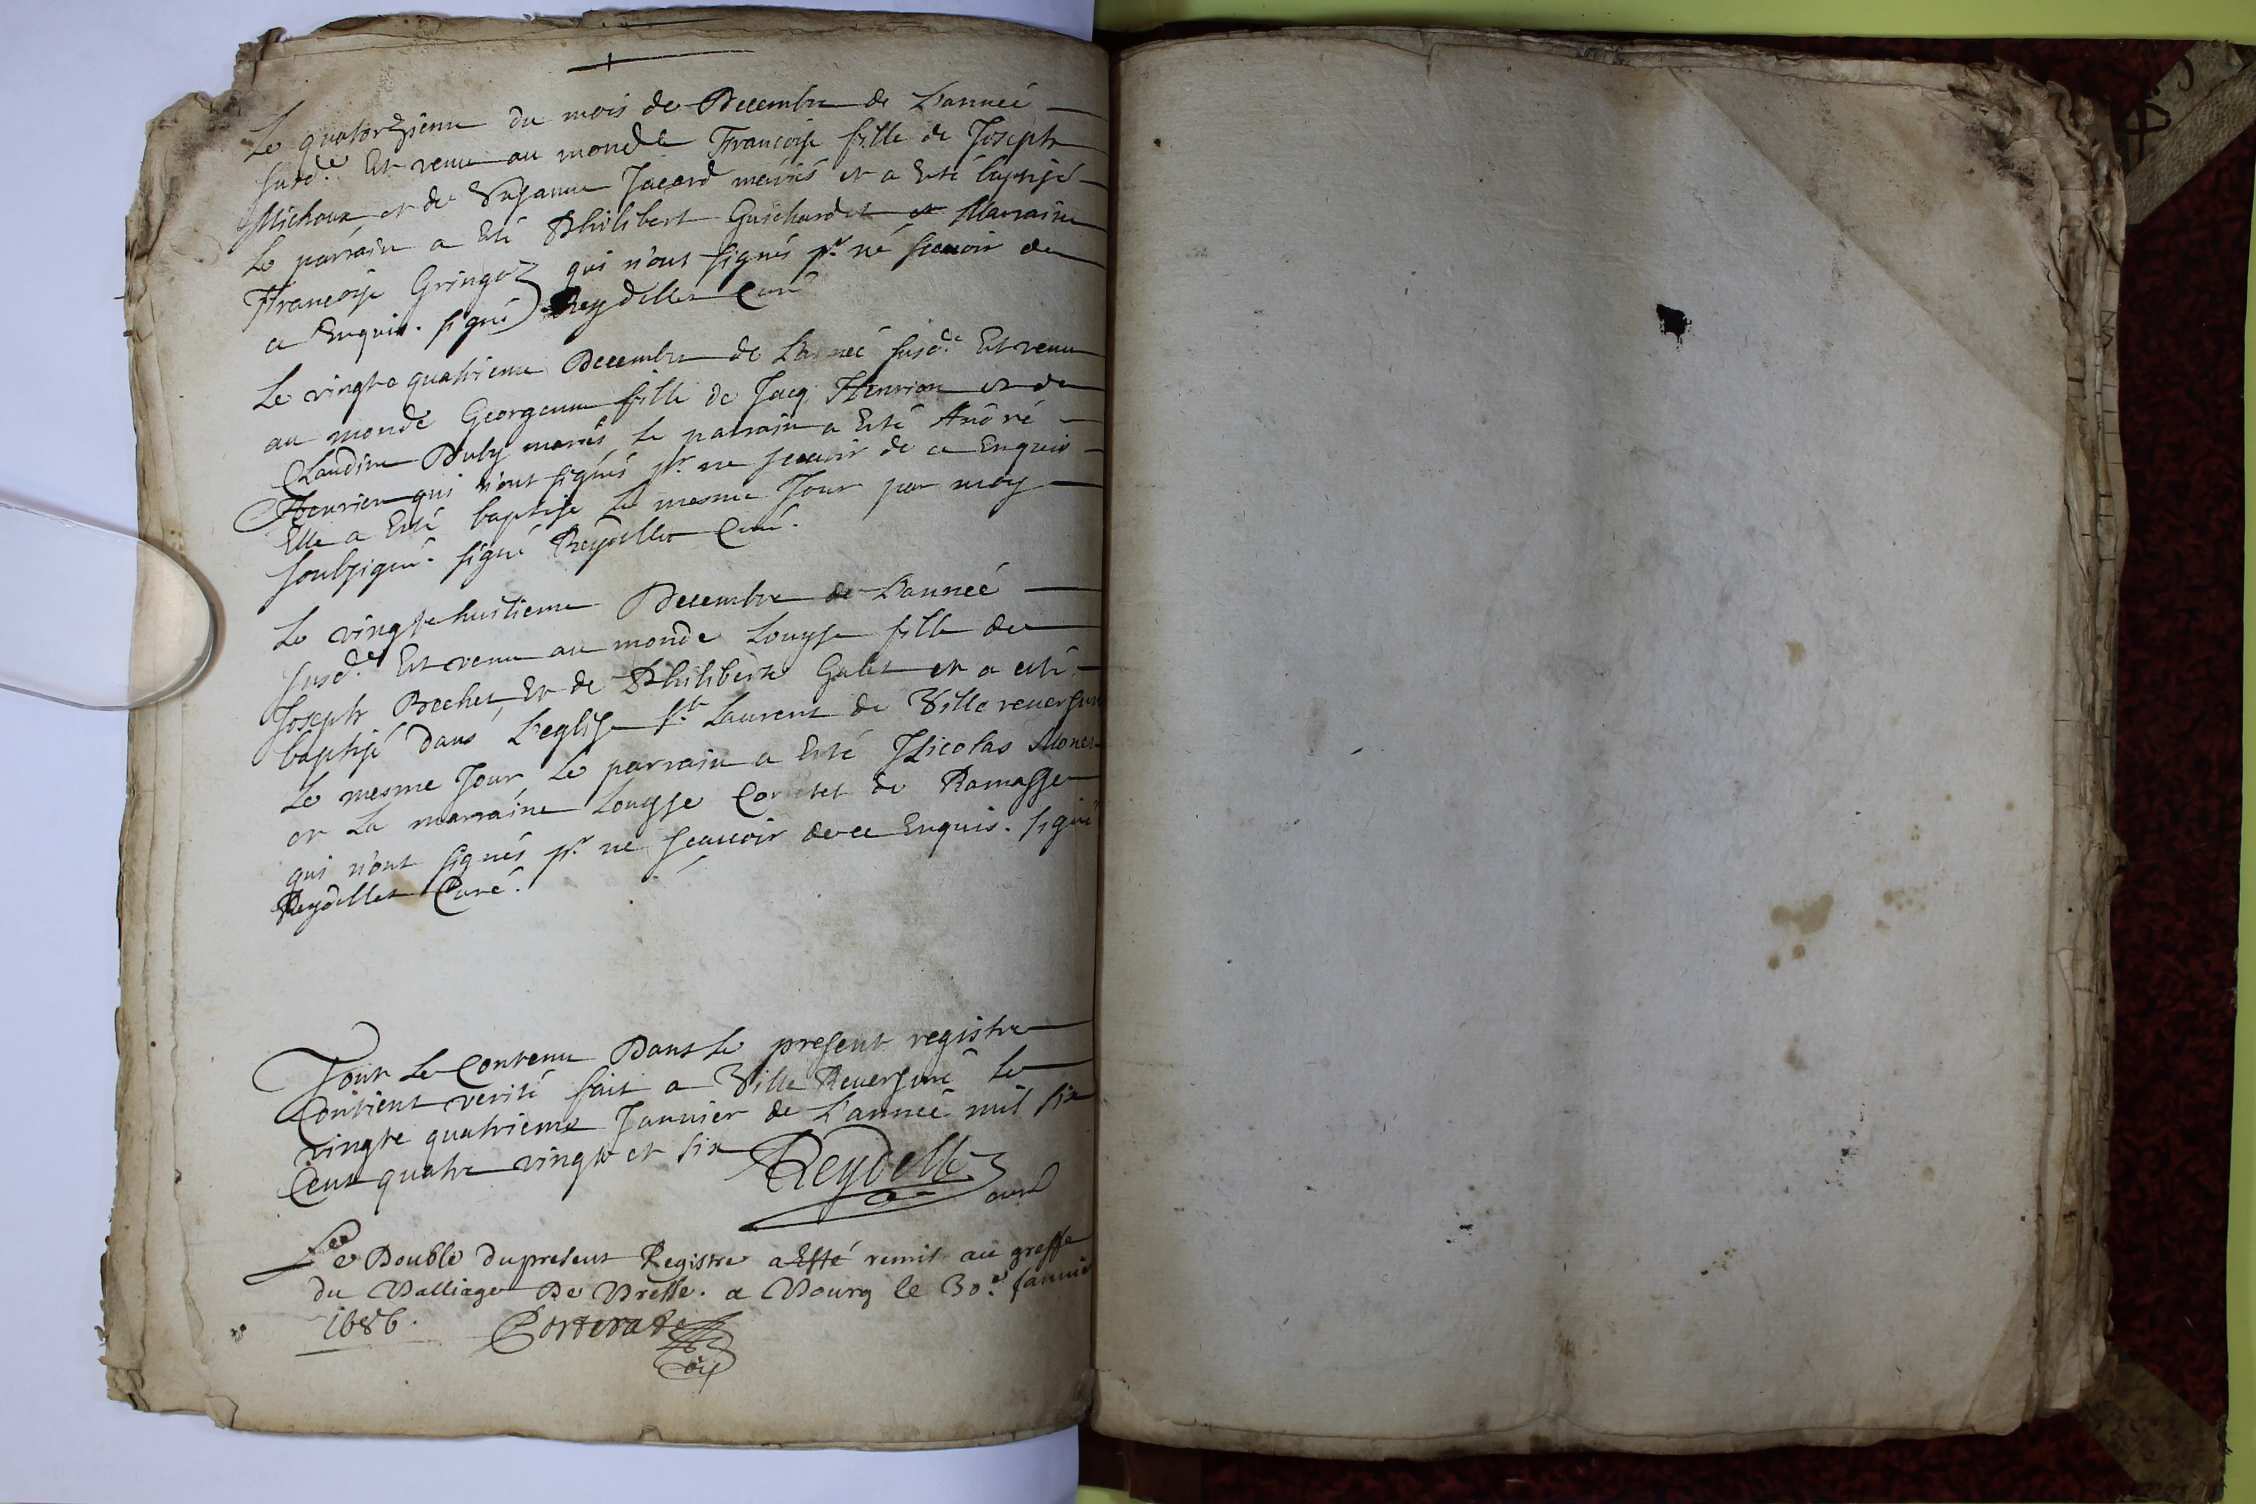 Le quatorzieme du mois de Decembre de L'anneé
susd.e Est venu au monde Francoise fille de Joseph
Michoux et de Susanne Jacard mariés et a Esté baptisé
Le parrain a Eté Philibert Guichardet et Marraine
Francoise Gringoz qui n'ont signés p.r né scauoir de
ce Enquis. signé Reydellet Curé
Le vingte quatrieme Decembre de L'anneé susd.e Est venu
au monde Georgenne fille de Jacq Henrion et de
Claudine Duby mariés le parrain a Esté André
Henrion qui n'ont signés p.r ne scauoir de ce Enquis
Elle a Esté baptise Le mesme Jour par moy
soubsigné. signé Reydellet Curé.
Le vingte huitieme Decembre de L'anneé
susd.e Est venu au monde Louyse fille de
Joseph Bechet Et de Philiberte Galet et a esté
baptisé dans L'eglise s.t Laurent de Ville reuersure
Le mesme Jour Le parrain a Esté Nicolas Monet
et La marraine Louyse de Ramasse
qui n'ont signés p.r ne scauoir de ce Enquis. signé
Reydellet Curé.
Tout Le Contenu Dans Le present registre
Contient verité fait a Ville Reuersure Le
vingte quatrieme Januier de L'anneé mil six
Cent quatre vingte et six Reydellet
curé
Le Double du present Registre a Esté remis au greffe
du Balliage De Bresse. a Bourg le 30.e Januier
1686.